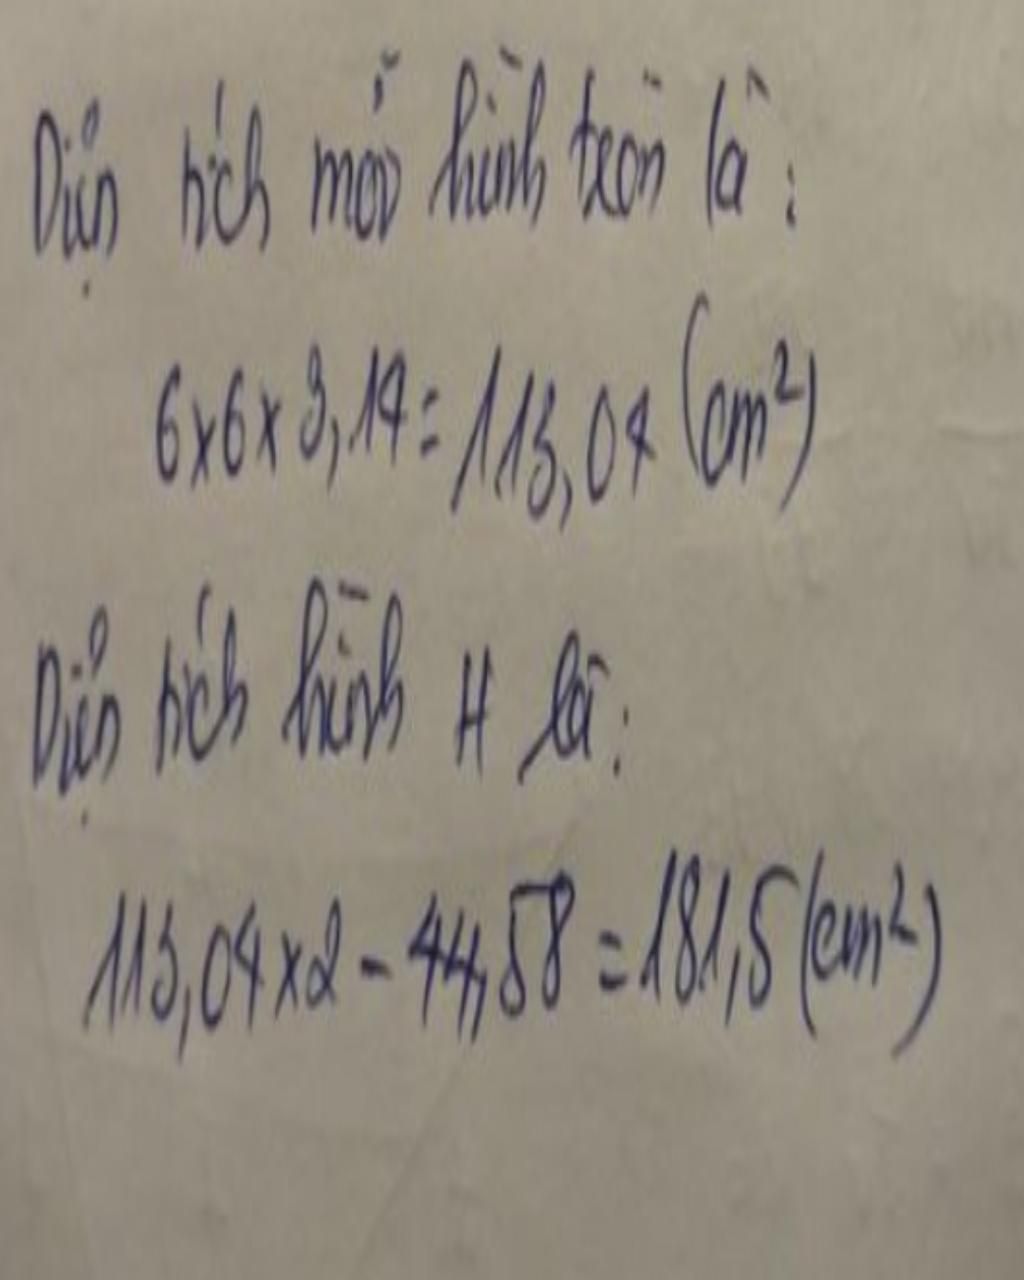 Diện tích mỗi hình tròn là:
6 x 6 x 3,14 = 113,04 (cm²)
Diện tích hình H là:
113,04 x 2 - 44,58 = 181,5 (cm²)